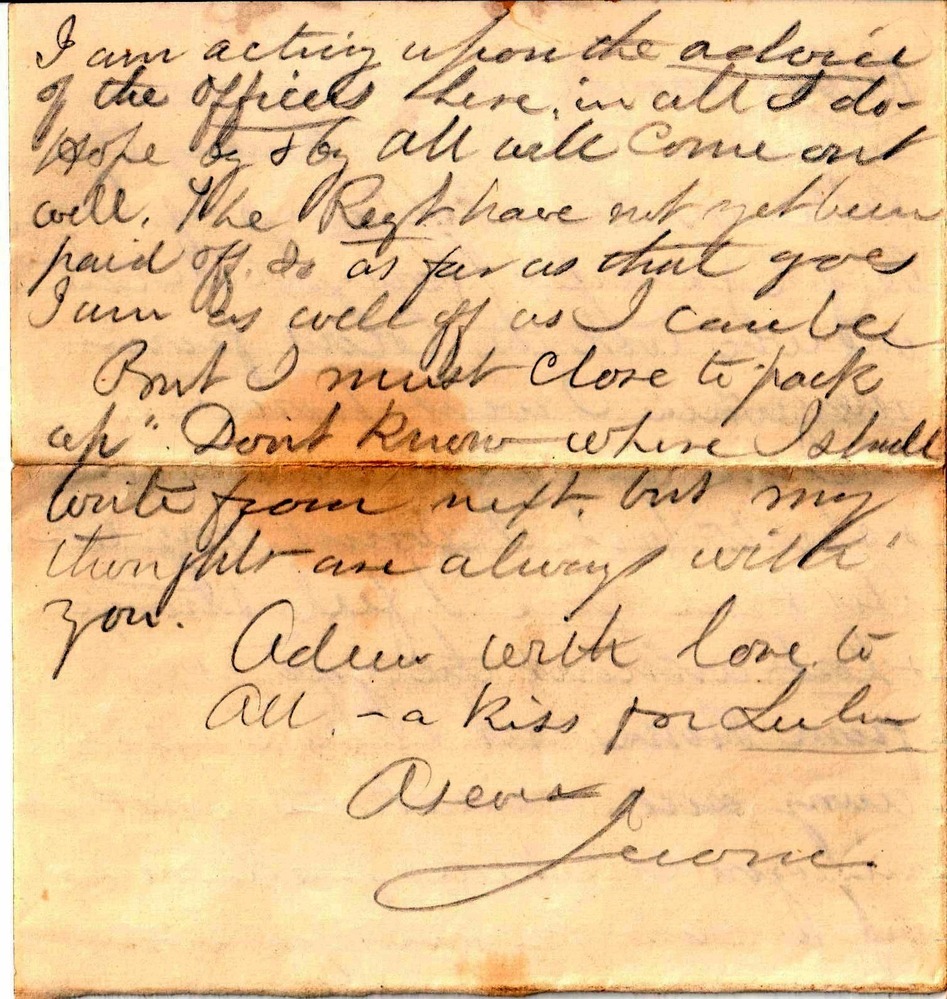 I am acting upon the advice
of the officers here, in all I do -
Hope by & by all will Come out
well. The Regt have not yet been
paid off. So as far as that goes
I am as well off as I can be
But I must Close to "pack
up". Don't Know where I shall
write from next. but my
thoughts are always with
you.
Adieu with love to
All. - a Kiss for Lulu
As ever
Jerome.